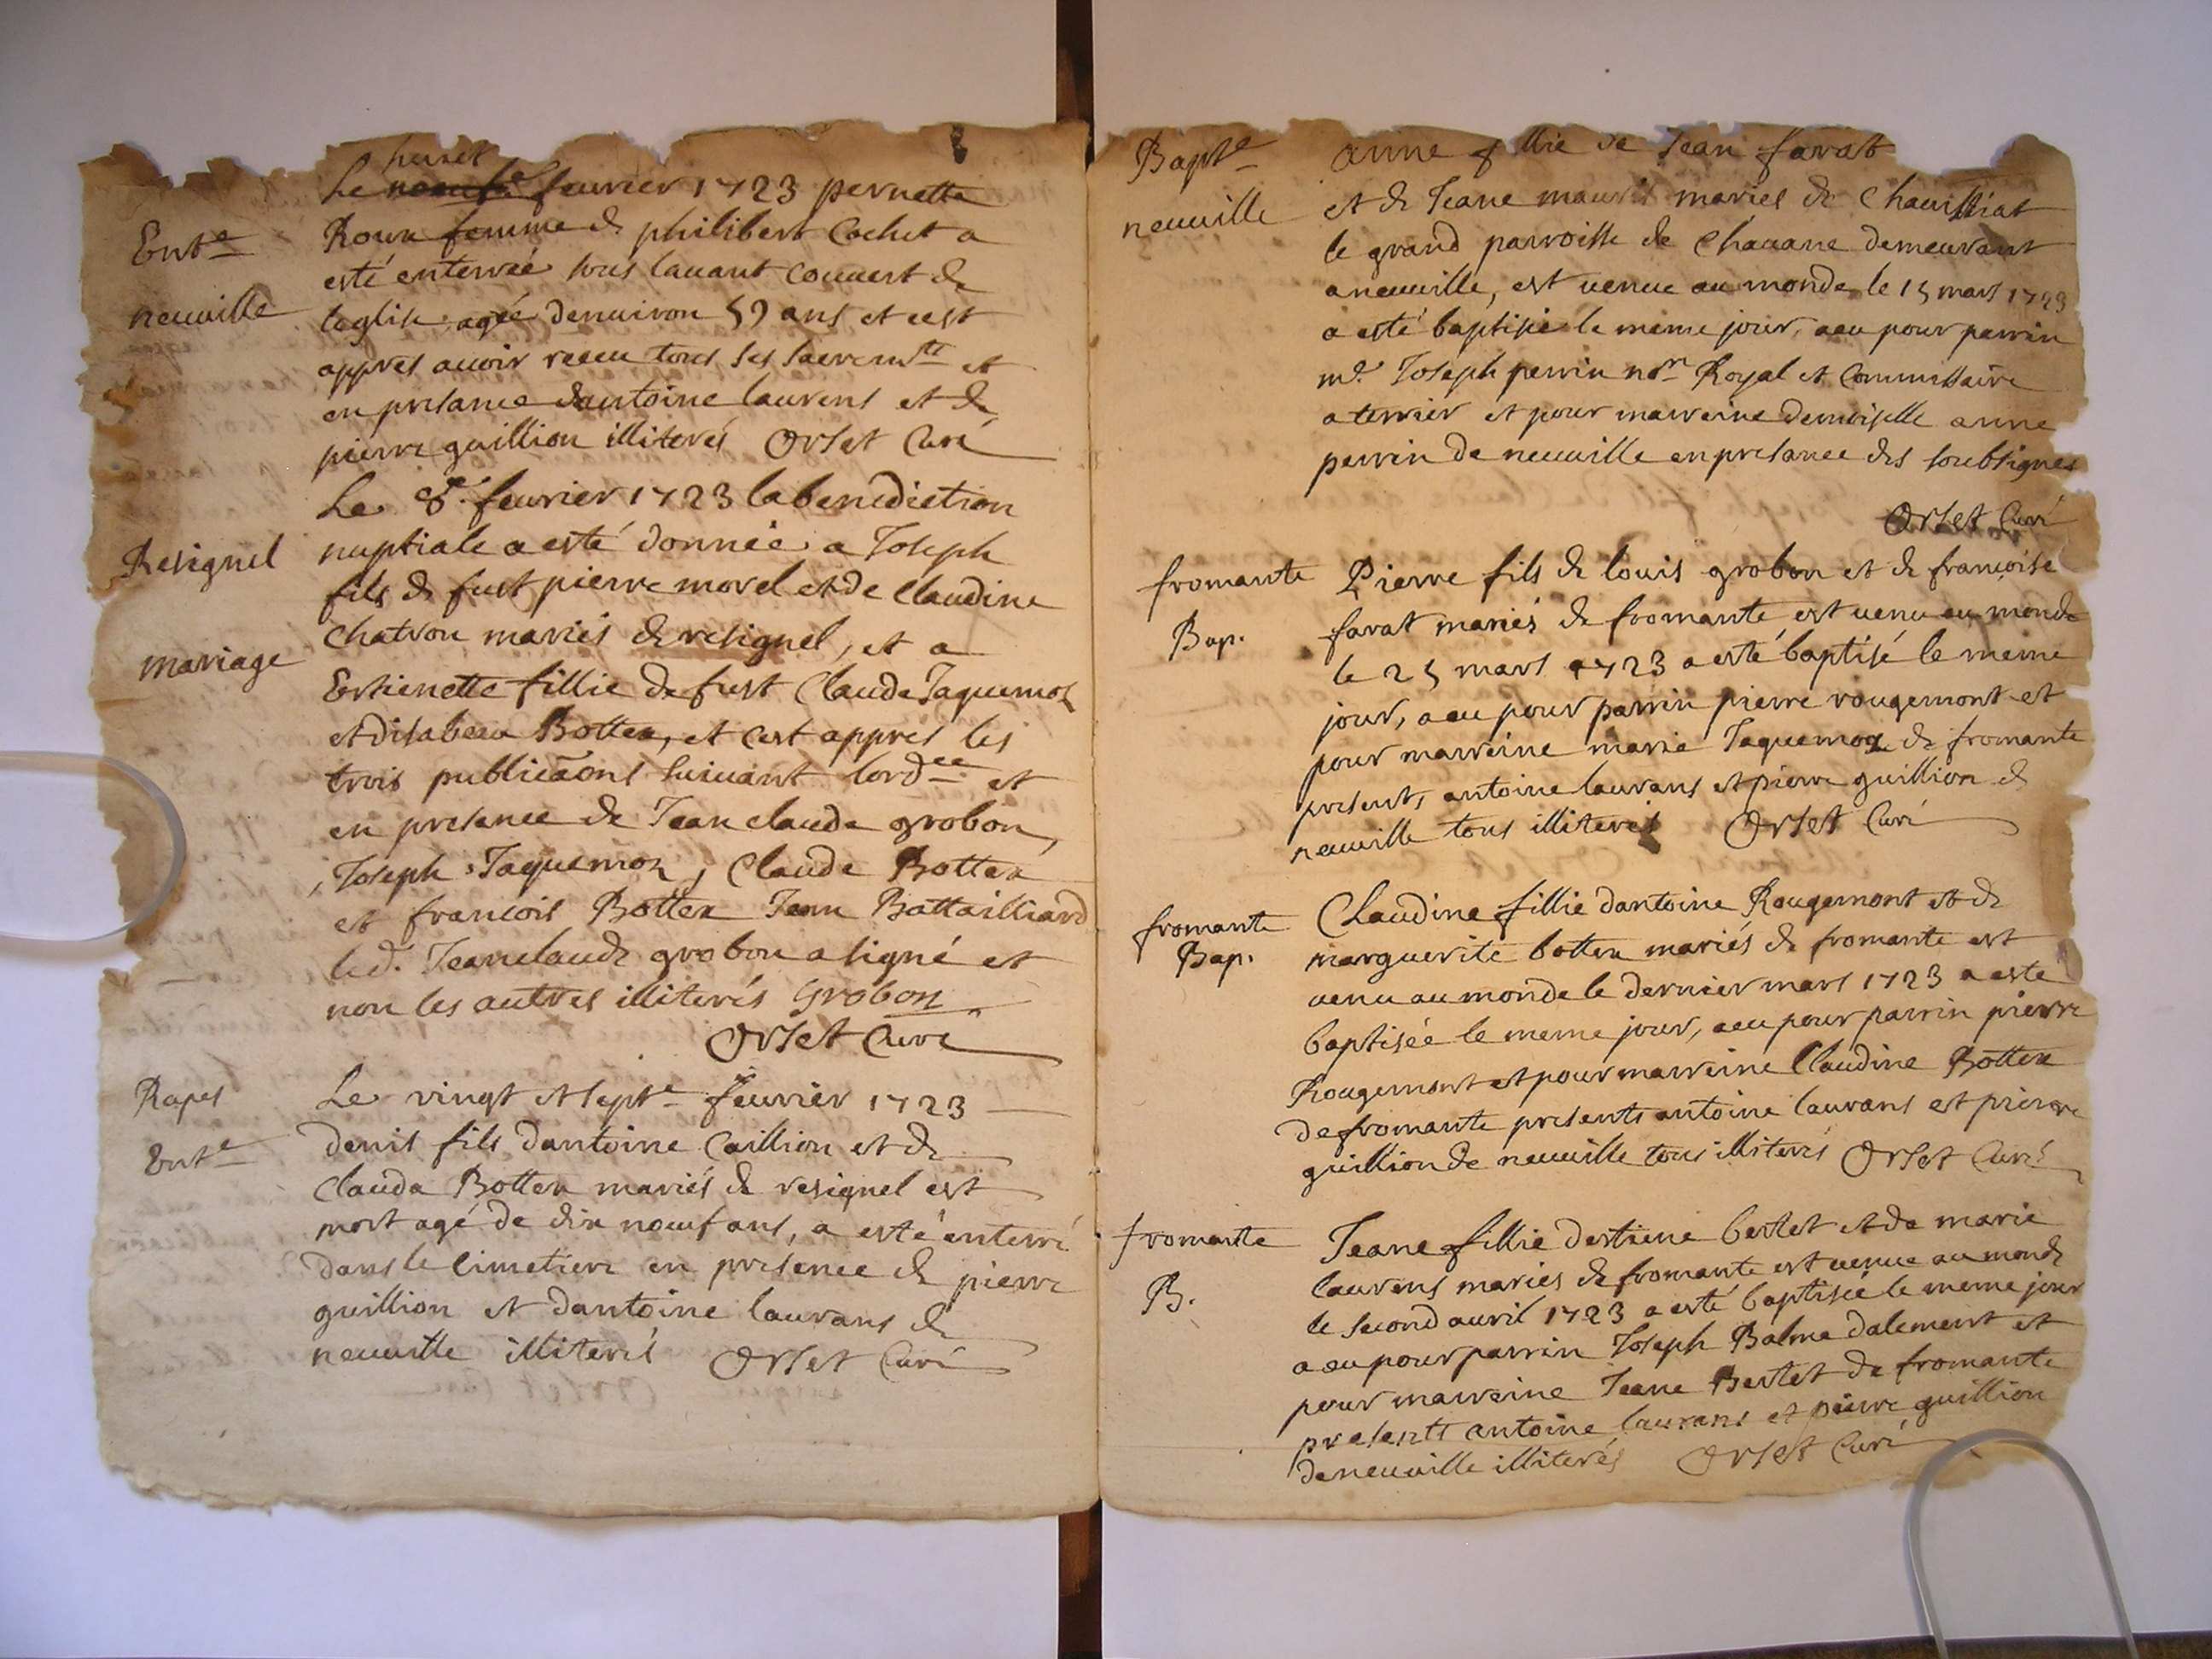 Ent.e
neuville
Le février 1723 pernette
Roux femme de philibert Cochet a
esté enterrée sous lauant couuert de
leglise agée denuiron 59 ans et cest
appres auoir receu tous ses sacremts et
en presance dantoine laurens et de
pierre guillion illiterés Orset Curé
Resignel
mariage
Le 8e. feurier 1723 la benediction
nuptiale a esté donnée a Joseph
fils de fust pierre morel et de Claudine
Chatron mariés de resignel, et a
Estienette fillie de fust Claude Jaquemox
et disabeau Bottex, et cest appres les
trois publicaons suiuant lordce et
en presence de Jean claude grobon,
Joseph Jaquemox, Claude Bottex
et francois Bottex Jean Battailliard
led. Jeanclaude grobon a signé et
non les autres illiterés Grobon
Orset Curé
Rapes
Ent.e
Le vingt et septe feurier 1723
denis fils dantoine Caillion et de
Clauda Bottex mariés de resignel est
mort agé de dix noeuf ans, a esté enterré
dans le cimetiere en presence de pierre
guillion et dantoine laurans de
neuuille illiterés Orset Curé
Bapte
neuuille
anne fillie de Jean farat
et de Jeane mariés de Chauilliat
le grand parroisse de Chauane demeurant
a neuuille, est uenue au monde le 15 mars 1723
a esté baptisée le meme jour, a eu pour parrin
me. Joseph perrin nore Royal et Commissaire
a terrier et pour marreine demoiselle anne
perrin de neuuille en presance des soubsignes
Orset Curé
fromante
Bap.
Pierre fils de louis grobon et de francoise
farat mariés de fromante est uenu au monde
le 25 mars 1723 a esté baptisé le meme
jour, a eu pour parrin pierre rougemont et
pour marreine marie Jaquemox de fromante
presents antoine laurans et pierre guillion de
neuuille tous illiterés Orset Curé
fromante
Bap.
Claudine fillie dantoine Rougemont et de
marguerite bottex mariés de fromante est
uenu au monde le dernier mars 1723 a este
baptisée le meme jour, a eu pour parrin pierre
Rougemont et pour marreine Claudine Bottex
de fromante presents antoine laurans et pierre
guillion de neuuille tous illiterés Orset Curé
fromante
B.
Jeane fillie destiene bertet et de marie
laurens mariés de fromante est uenue au monde
le second auril 1723 a esté baptisée le meme jour
a eu pour parrin Joseph Balme dalement et
pour marreine Jeane Bertet de fromante
presents antoine laurans et pierre guillion
de neuuille illiterés Orset Curé